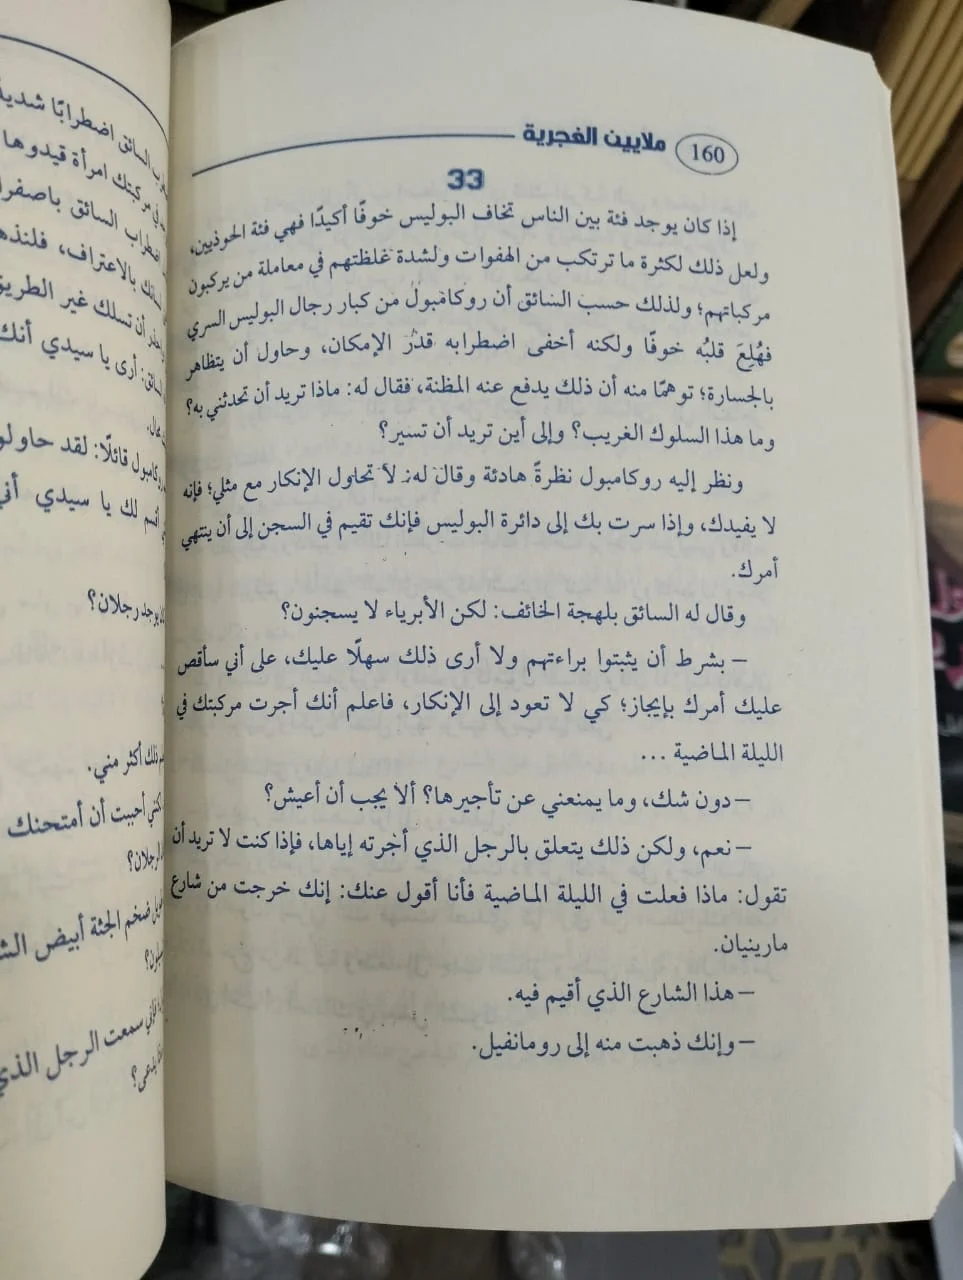 160 ملايين الغجرية
33
إذا كان يوجد فئة بين الناس تخاف البوليس خوفًا أكيدًا فهي فئة الحوذيين،
ولعل ذلك لكثرة ما ترتكب من الهفوات ولشدة غلظتهم في معاملة من يركبون
مركباتهم؛ ولذلك حسب السائق أن روكامبول من كبار رجال البوليس السري
فهُلِعَ قلبُه خوفًا ولكنه أخفى اضطرابه قدْرَ الإمكان، وحاول أن يتظاهر
بالجسارة؛ توهمًا منه أن ذلك يدفع عنه المظنة، فقال له: ماذا تريد أن تحدثني به؟
وما هذا السلوك الغريب؟ وإلى أين تريد أن تسير؟
ونظر إليه روكامبول نظرةً هادئة وقال له: لا تحاول الإنكار مع مثلي؛ فإنه
لا يفيدك، وإذا سرت بك إلى دائرة البوليس فإنك تقيم في السجن إلى أن ينتهي
أمرك.
وقال له السائق بلهجة الخائف: لكن الأبرياء لا يسجنون؟
– بشرط أن يثبتوا براءتهم ولا أرى ذلك سهلًا عليك، على أني سأقص
عليك أمرك بإيجاز؛ كي لا تعود إلى الإنكار، فاعلم أنك أجرت مركبتك في
الليلة الماضية ...
– دون شك، وما يمنعني عن تأجيرها؟ ألا يجب أن أعيش؟
– نعم، ولكن ذلك يتعلق بالرجل الذي أجرته إياها، فإذا كنت لا تريد أن
تقول: ماذا فعلت في الليلة الماضية فأنا أقول عنك: إنك خرجت من شارع
مارينيان.
– هذا الشارع الذي أقيم فيه.
– وإنك ذهبت منه إلى رومانفيل.
السائق اضطرابًا
مركبتك امرأة قيدوها
اضطراب السائق باصفرا
بالاعتراف، فلنذه
أن تسلك غير الطريق
أرى يا سيدي أنك
روكامبول قائلًا: لقد حاولو
لك يا سيدي أني
يوجد رجلان؟
ذلك أكثر مني.
أحببت أن أمتحنك
الرجلان؟
ضخم الجثة أبيض
سمعت الرجل الذي